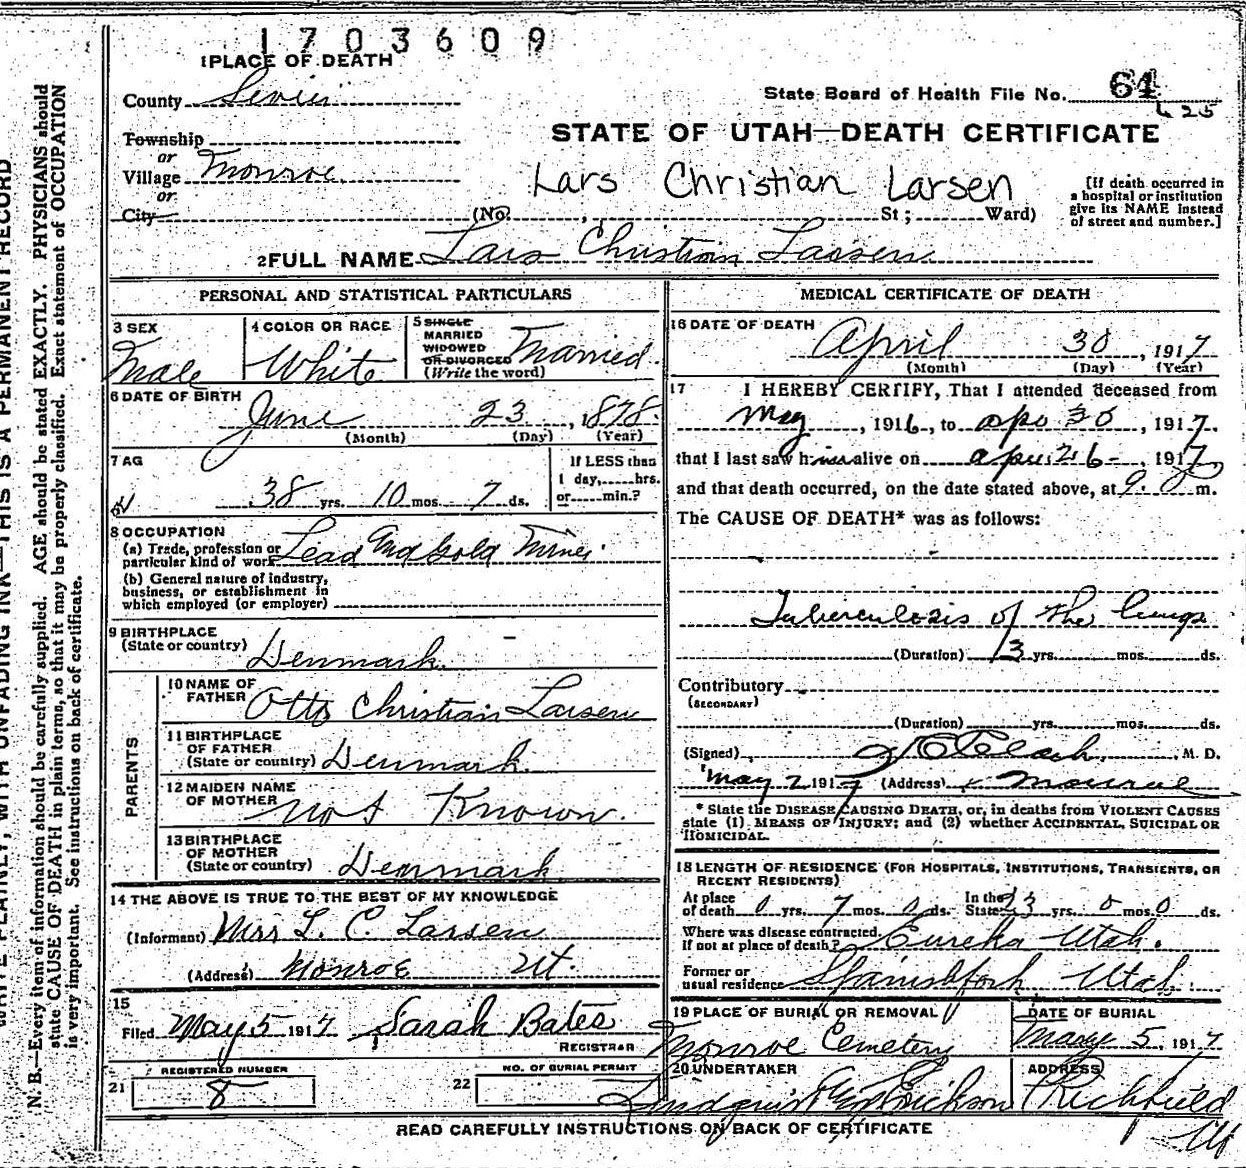 1703609
1 PLACE OF DEATH
County Sevier
State Board of Health File No. 64
625
Township
or
Village Monroe
or
City
STATE OF UTAH—DEATH CERTIFICATE
Lars Christian Larsen
(No. , St; Ward)
[If death occurred in a hospital or institution give its NAME instead of street and number.]
2 FULL NAME Lars Christian Larsen
PERSONAL AND STATISTICAL PARTICULARS
3 SEX
Male
4 COLOR OR RACE
White
5 SINGLE
MARRIED
WIDOWED
OR DIVORCED
(Write the word)
Married.
6 DATE OF BIRTH
June 23, 1878
(Month) (Day) (Year)
7 AG
38 yrs. 10 mos. 7 ds.
If LESS than
1 day,.....hrs.
or.....min.?
8 OCCUPATION
(a) Trade, profession or
particular kind of work Lead and Gold Miner
(b) General nature of industry,
business, or establishment in
which employed (or employer)
9 BIRTHPLACE
(State or country)
Denmark
PARENTS
10 NAME OF
FATHER
Otto Christian Larsen
11 BIRTHPLACE
OF FATHER
(State or country) Denmark.
12 MAIDEN NAME
OF MOTHER
Not Known.
13 BIRTHPLACE
OF MOTHER
(State or country) Denmark
14 THE ABOVE IS TRUE TO THE BEST OF MY KNOWLEDGE
(Informant) Mrs L. C. Larsen
(Address) Monroe Ut.
15
Filed May 5 1917 Sarah Bates
REGISTRAR
REGISTERED NUMBER
21 8
NO. OF BURIAL PERMIT
22
MEDICAL CERTIFICATE OF DEATH
16 DATE OF DEATH
April 30, 1917
(Month) (Day) (Year)
17 I HEREBY CERTIFY, That I attended deceased from
May, 1916, to Apr 30, 1917.
that I last saw him alive on Apr. 26-, 1917
and that death occurred, on the date stated above, at 9. m.
The CAUSE OF DEATH* was as follows:
Tuberculosis of the lungs
(Duration) 3 yrs. mos. ds.
Contributory
(SECONDARY)
(Duration) yrs. mos. ds.
(Signed) , M. D.
May 2 1917 (Address) Monroe
* State the DISEASE CAUSING DEATH, or, in deaths from VIOLENT CAUSES
state (1) MEANS OF INJURY; and (2) whether ACCIDENTAL, SUICIDAL OR
HOMICIDAL.
18 LENGTH OF RESIDENCE (FOR HOSPITALS, INSTITUTIONS, TRANSIENTS, OR
RECENT RESIDENTS)
At place
of death 0 yrs. 7 mos. 0 ds. In the
State 23 yrs. 0 mos. 0 ds.
Where was disease contracted.
If not at place of death? Eureka Utah.
Former or
usual residence Spanishfork Utah.
19 PLACE OF BURIAL OR REMOVAL
Monroe Cemetery
DATE OF BURIAL
May 5, 1917
20 UNDERTAKER
Lindquist Erickson
ADDRESS
Richfield
Ut
READ CAREFULLY INSTRUCTIONS ON BACK OF CERTIFICATE
WRITE PLAINLY, WITH UNFADING INK—THIS IS A PERMANENT RECORD
N. B.—Every item of information should be carefully supplied. AGE should be stated EXACTLY. PHYSICIANS should
state CAUSE OF DEATH in plain terms, so that it may be properly classified. Exact statement of OCCUPATION
is very important. See instructions on back of certificate.